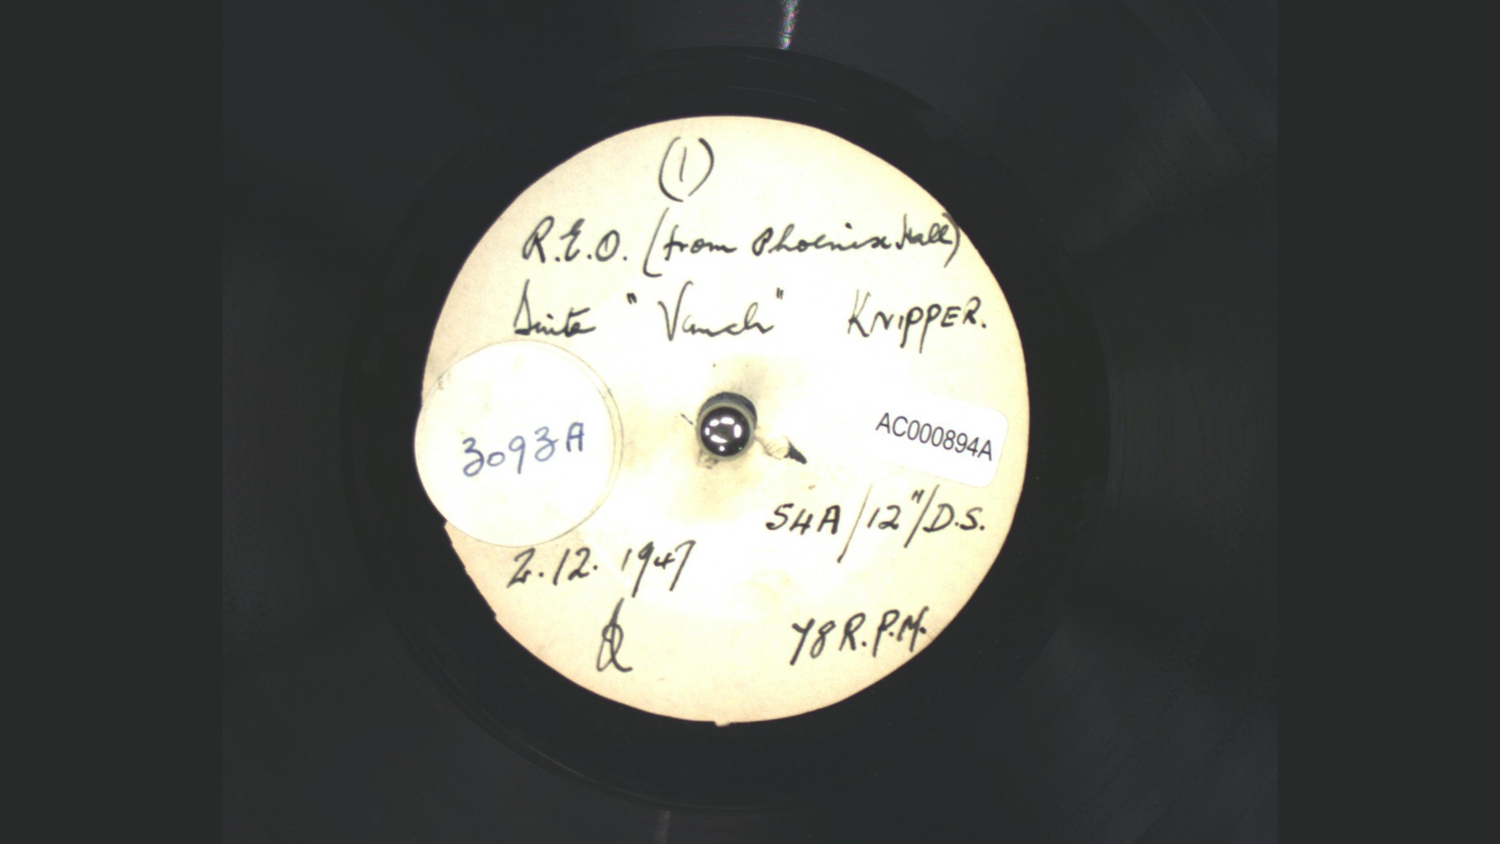 (1)
R.E.O. (from Phoenix Hall)
Suite "Vanch" KNIPPER.
3093A
AC000894A
S4A/12"/D.S.
2.12.1947
78 R.P.M.